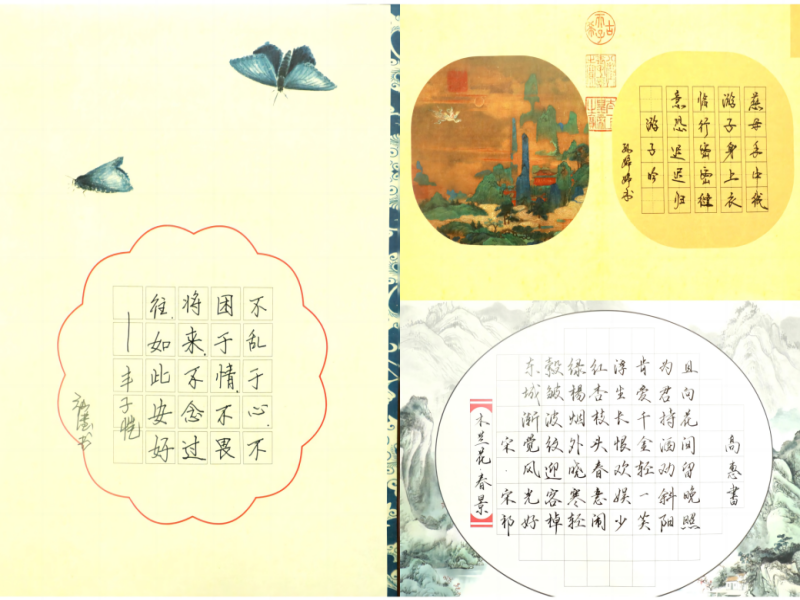 不乱于心.不
困于情.不畏
将来.不念过
往.如此安好
—丰子恺
慈母手中线
游子身上衣
临行密密缝
意恐迟迟归
游子吟
木兰花·春景
宋·宋祁
东城渐觉风光好
縠皱波纹迎客棹
绿杨烟外晓寒轻
红杏枝头春意闹
浮生长恨欢娱少
肯爱千金轻一笑
为君持酒劝斜阳
且向花间留晚照
高惠書